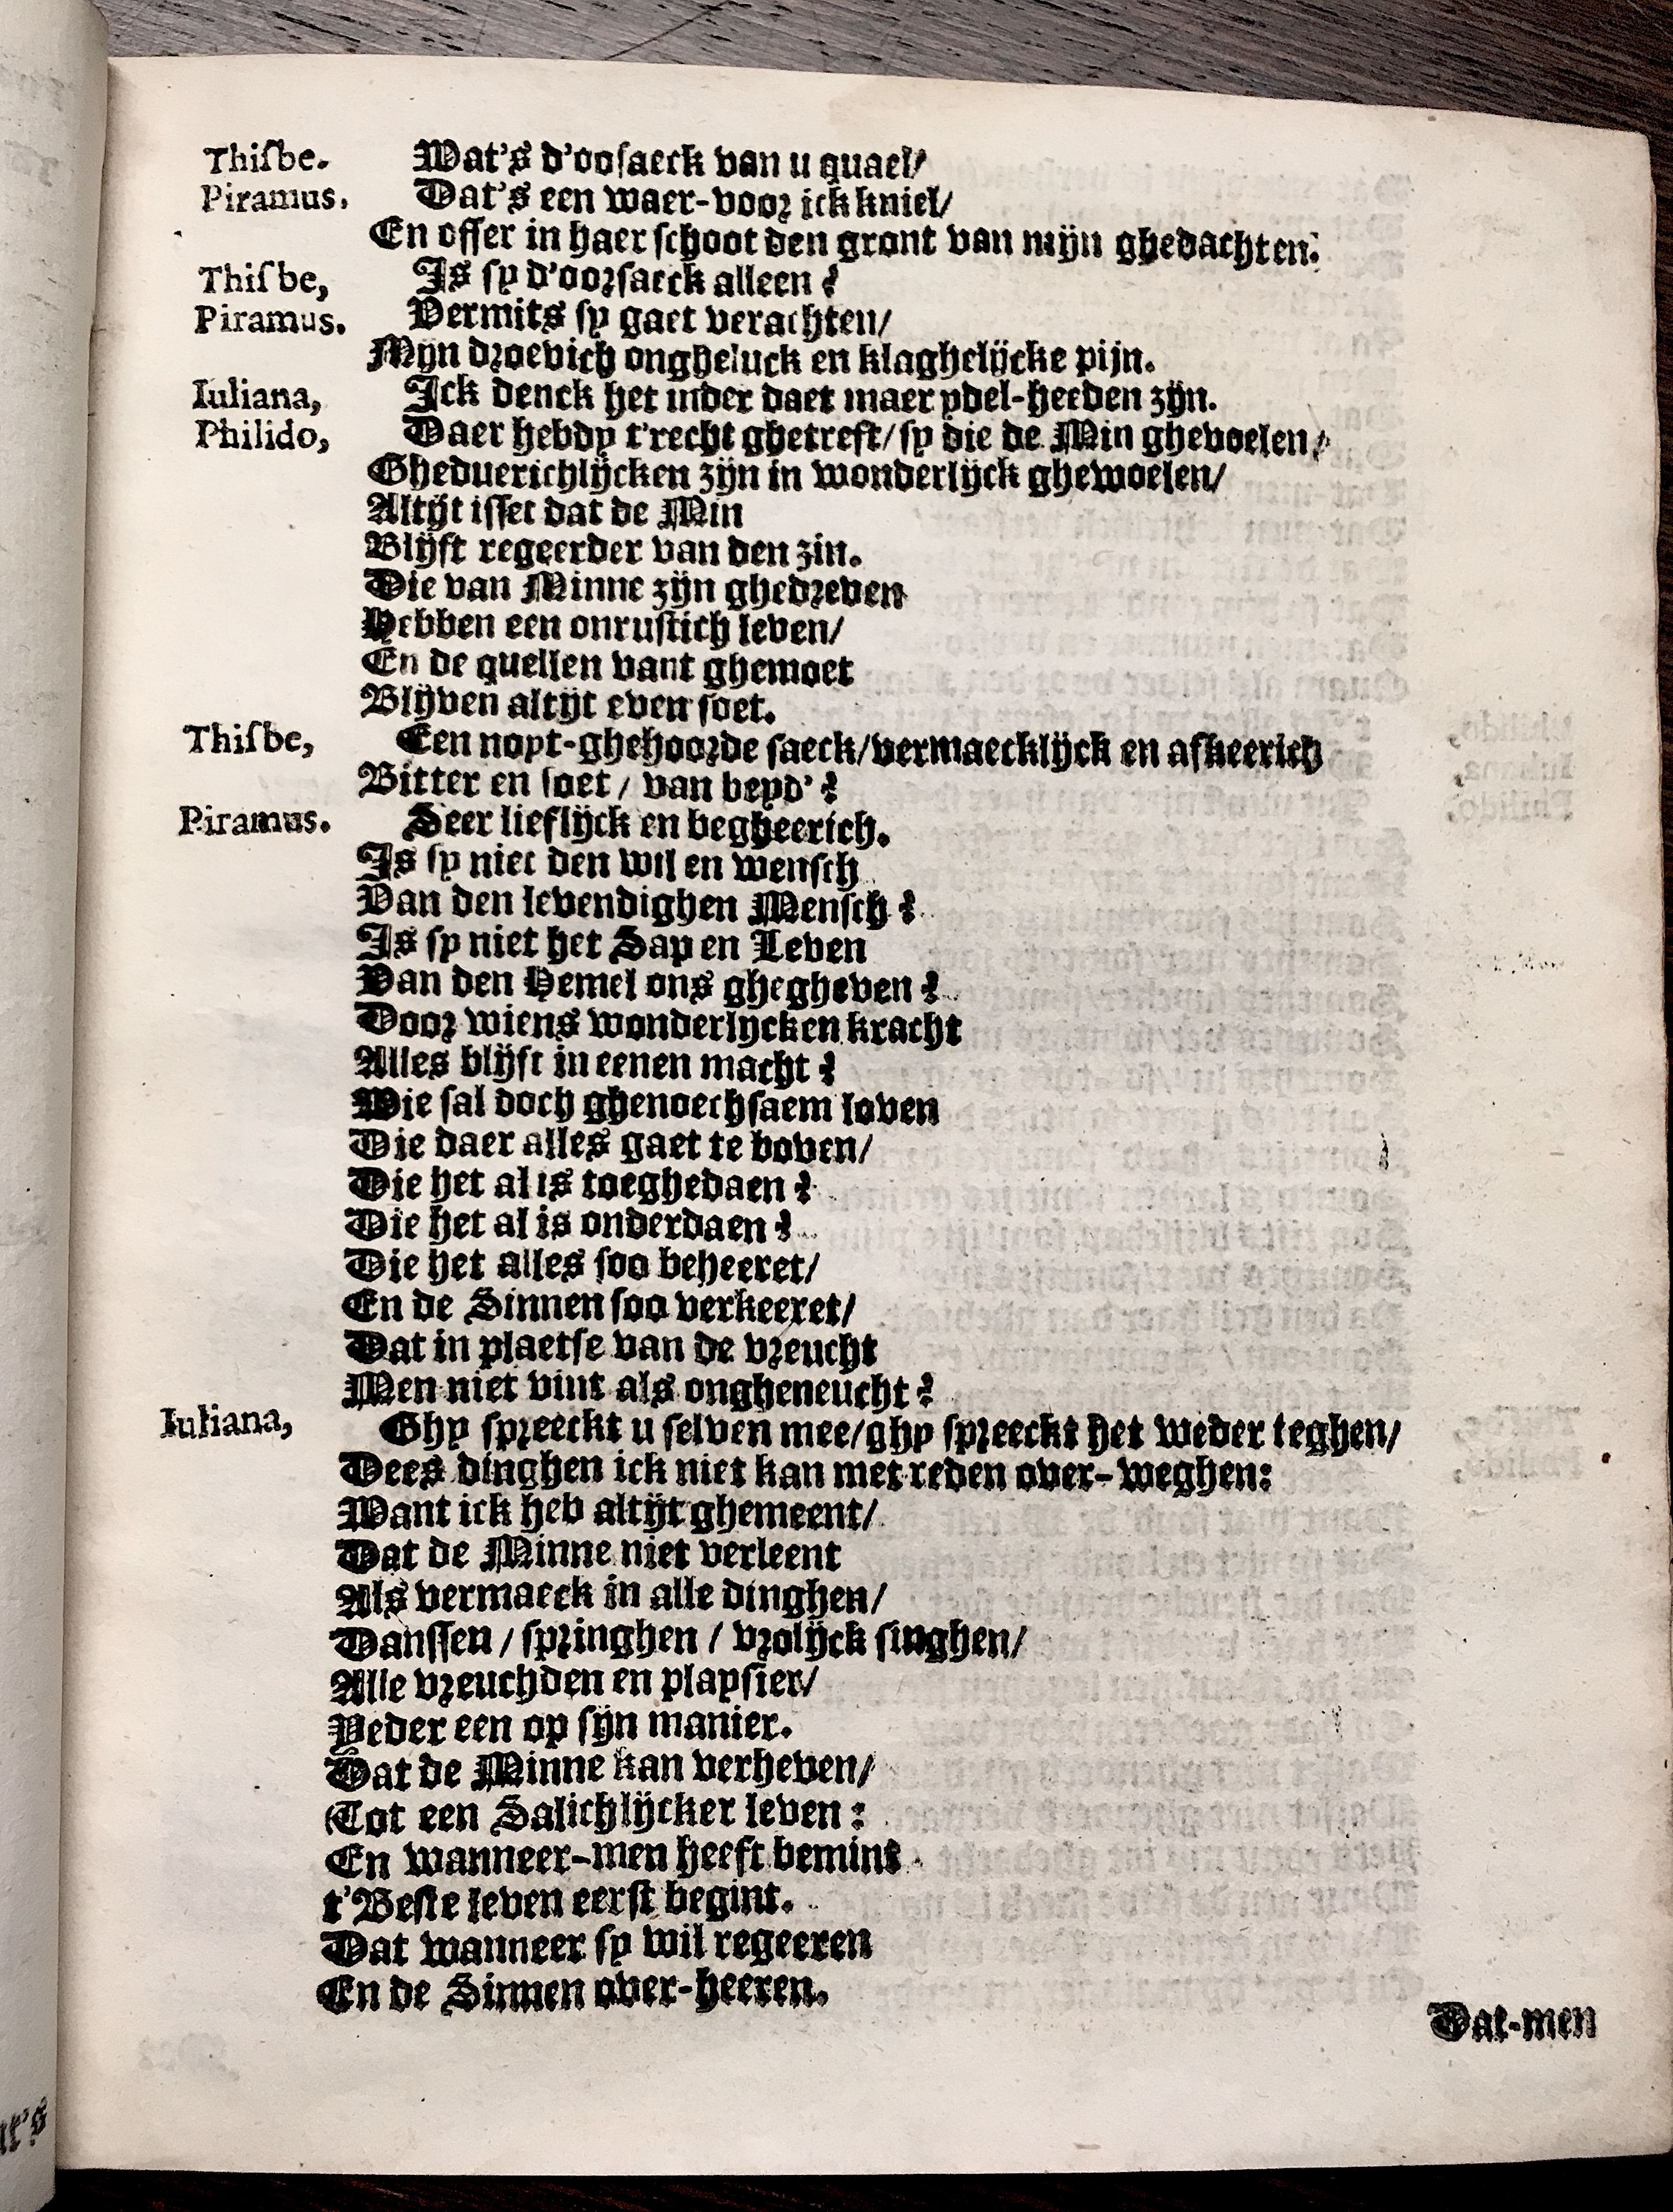 Thiſbe. Wat's d'ooſaeck van u quael/
Piramus. Dat's een waer-voor ick kniel/
En offer in haer ſchoot den gront van mijn ghedachten.
Thiſbe, Is ſy d'oorſaeck alleen?
Piramus. Vermits ſy gaet verachten/
Mijn droevich ongheluck en klaghelijcke pijn.
Iuliana, Ick denck het inder daet maer ydel-heeden zijn.
Philido, Daer hebdy t'recht ghetreft/ ſy die de Min ghevoelen/
Gheduerichlijcken zijn in wonderlijck ghewoelen/
Altijt iſſet dat de Min
Blijft regeerder van den zin.
Die van Minne zijn ghedreven
Hebben een onruſtich leven/
En de quellen vant ghemoet
Blijven altijt even ſoet.
Thiſbe, Een noyt-ghehoorde ſaeck/vermaecklijck en afkeerich
Bitter en ſoet/ van beyd'?
Piramus. Seer lieflijck en begheerich.
Is ſy niet den wil en wenſch
Van den levendighen Menſch?
Is ſy niet het Sap en Leven
Van den Hemel ons ghegheven?
Door wiens wonderlijcken kracht
Alles blijft in eenen macht?
Wie ſal doch ghenoechſaem loven
Die daer alles gaet te boven/
Die het al is toeghedaen?
Die het al is onderdaen?
Die het alles ſoo beheeret/
En de Sinnen ſoo verkeeret/
Dat in plaetſe van de vreucht
Men niet vint als ongheneucht?
Iuliana, Ghy ſpreeckt u ſelven mee/ghy ſpreeckt het weder teghen/
Dees dinghen ick niet kan met reden over-weghen:
Want ick heb altijt ghemeent/
Dat de Minne niet verleent
Als vermaeck in alle dinghen/
Danſſen/ ſpringhen/ vrolijck ſinghen/
Alle vreuchden en playſier/
Yeder een op ſijn manier.
Dat de Minne kan verheven/
Tot een Salichlijcker leven:
En wanneer-men heeft bemint
t'Beſte leven eerſt begint.
Dat wanneer ſy wil regeeren
En de Sinnen over-heeren.
Dat-men